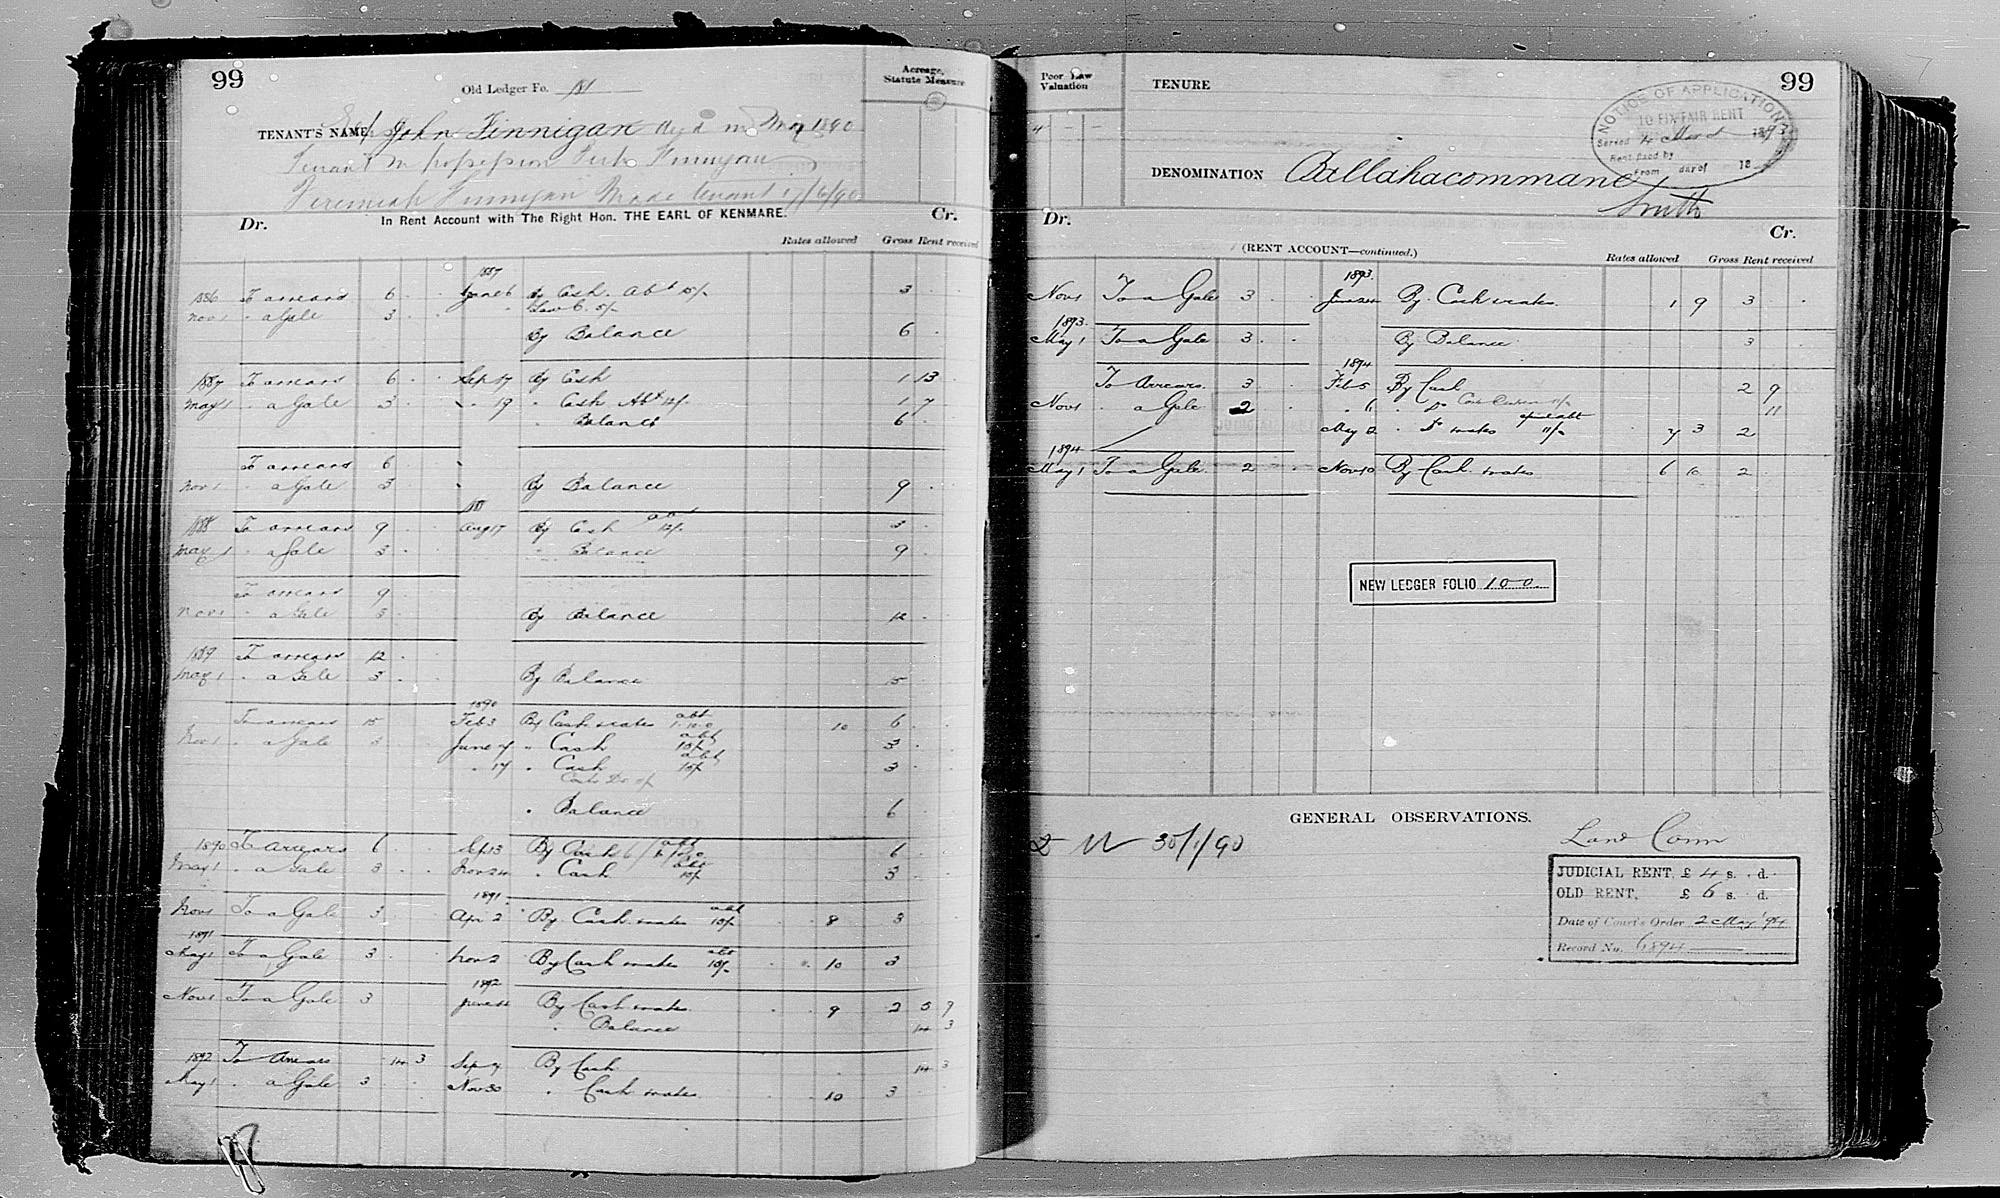 99
Old Ledger Fo. 181
Acreage,
Statute Measure
TENANT'S NAME John Finnigan died in May 1890
Tenant in possession Finnigan
Jeremiah Finnigan Made tenant 17/6/90
In Rent Account with The Right Hon. THE EARL OF KENMARE.
Dr. Cr.
Rates allowed Gross Rent received
1887
1886 To arrears 6 . . June 6 By Cash Abt 15/- 3 .
Nov 1 . a Gale 3 . . " Law C. 5/-
By Balance 6 .
1887 To arrears 6 . . Sep 17 By Cash 1 13 .
May 1 . a Gale 3 . . " 19 " Cash Abt 12/- 1 7
Balance 6 .
To arrears 6 .
Nov 1 . a Gale 3 . By Balance 9 .
188
1888 To arrears 9 . . Aug 17 By Cash abt 12/- 3 .
May 1 . a Gale 3 . " Balance 9 .
To arrears 9
Nov 1 . a Gale 3 By Balance 12 .
1889 To arrears 12 .
May 1 . a Gale 3 . By Balance 15
1890
To arrears 15 Feb 3 By Cash & rates abt 1.10.0 10 6 .
Nov 1 . a Gale 3 June 7 " Cash abt 15/- 3 .
" 17 " Cash abt 15/- 3 .
Costs Do
" Balance 6 .
1890 To arrears 6 . Sep 13 By Cash abt 6 .
May 1 . a Gale 3 . . Nov 24 " Cash abt 15/- 3 .
1891
Nov 1 To a Gale 3 . . Apr 2 By Cash & rates abt 15/- 8 3 .
1891
May 1 To a Gale 3 . . Nov 2 By Cash & rates abt 15/- 10 3
1892
Nov 1 To a Gale 3 June By Cash & rates 9 2 5 9
" Balance 14 3
1892 To Arrears . 14 3 Sep 7 By Cash 14 3
May 1 . a Gale 3 . Nov 30 " Cash & rates 10 3 .
Poor Law
Valuation
4 - -
TENURE
99
NOTICE OF APPLICATION
TO FIX FAIR RENT
Served 4 March 1893
Rent fixed by
From day of 18
DENOMINATION Ballahacommane
Smith
Dr. Cr.
(RENT ACCOUNT—continued.)
Rates allowed Gross Rent received
1893.
Nov 1 To a Gale 3 . . June 24 By Cash & rates 1 9 3 .
1893.
May 1 To a Gale 3 . . By Balance 3
1894
To Arrears 3 . . Feb 5 By Cash 2 9
Nov 1 . a Gale 2 . . " " " Do 11/- 11
May 2 . Do & rates abt 11/- 7 3 2
1894
May 1 To a Gale 2 . . Nov 10 By Cash & rates 6 10 2
NEW LEDGER FOLIO 100
GENERAL OBSERVATIONS.
30/1/90
Land Com
JUDICIAL RENT, £ 4 s. . d. .
OLD RENT, £ 6 s. . d.
Date of Court's Order 2 May '94
Record No. 6894